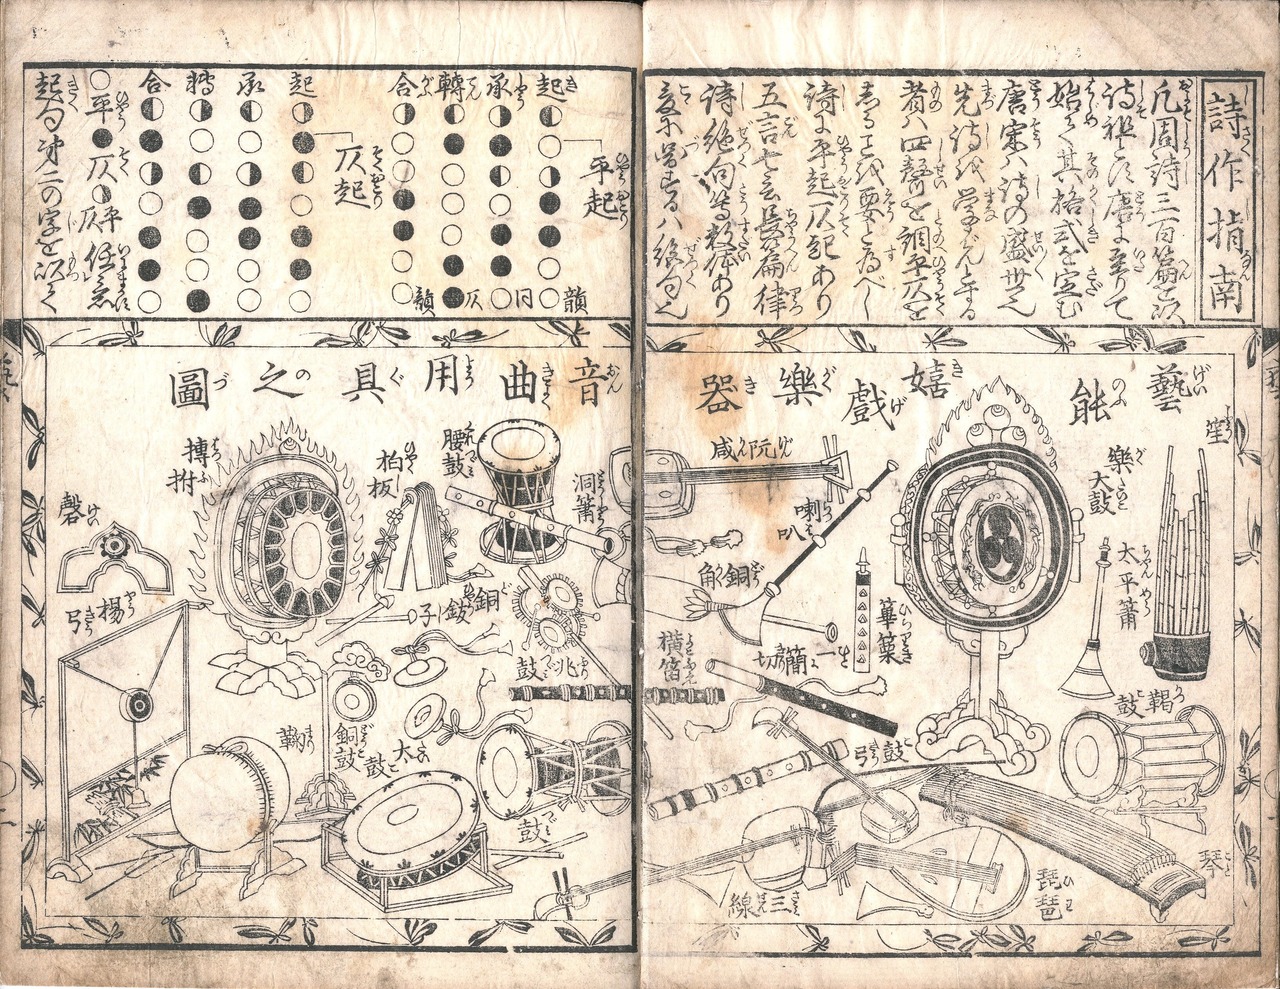 詩作指南
凡周詩三百篇を以
詩祖とす唐に至りて
始て其格式を定む
唐宋ハ詩の盛世也
先詩を学ばんとする
者ハ四聲を調平仄を
しるを要と為べし
詩に平起仄起あり
五言七言長篇律
詩絶句等数体あり
爰に圖するハ絶句也
平起
起 韻
承 同
轉 仄
合 韻
仄起
起
承
轉
合
○平 ●仄 ◐平仄任意
起句第二の字を以て
藝能嬉戯樂器
音曲用具之圖
笙
樂大鼓
太平簫
羯鼓
琴
琵琶
篳篥
阮咸
喇叭
銅角
一節切
横笛
鼓弓
三線
洞簫
腰鼓
銅鈸子
鼓
柏板
搏拊
磬
楊弓
銅鼓
鞠
太鼓
鼓